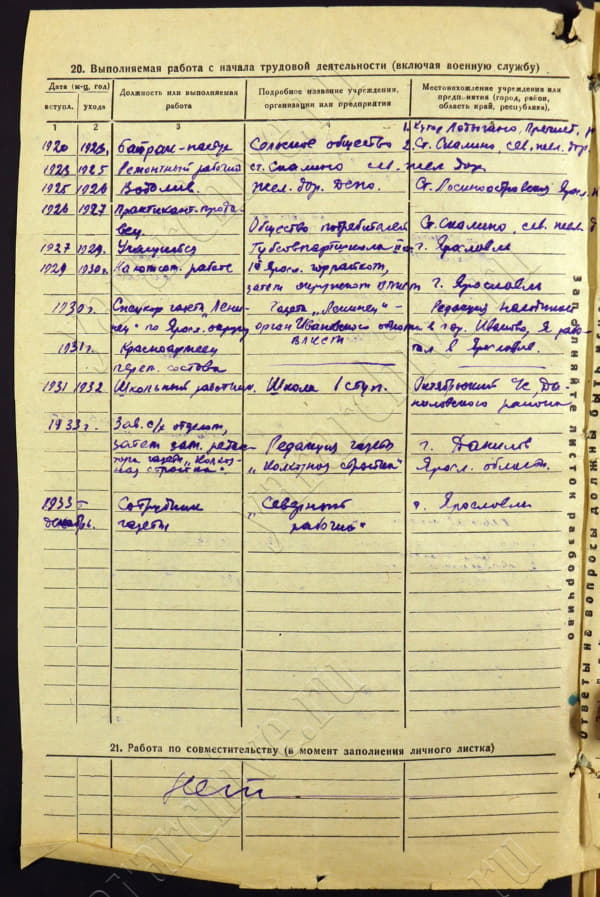 20. Выполняемая работа с начала трудовой деятельности (включая военную службу)
Дата (м-ц, год)
вступл. ухода
Должность или выполняемая работа
Подробное название учреждения, организации или предприятия
Местонахождение учреждения или предприятия (город, район, область край, республика),
1 2 3
1920 1923 Батрак-пастух Сельское общество 1. Хутор
2. Ст. Скалино, сев. жел. дор.
1923 1925 Ремонтный рабочий ст. Скалино сев. жел. дор.
1925 1926 Водолив. жел. дор. депо. Ст. Лосиноостровская
1926 1927 Практикант-продавец. Общество потребителей Ст. Скалино, сев. жел. д
1927 1929. Учащийся Губсовпартшкола г. Ярославль
1929 1930г. На комс. работе
затем г. Ярославль
1930г. Спецкор газеты „Ленинец" по Яросл. округу
Газета „Ленинец" – орган Ивановского ВЛКСМ
Редакция в гор. Иваново, Я работал в Ярославле.
1931г. Красноармеец
перем. состава
1931 1932 Школьный работник. Школа 1 ступ. Октябрьский с/с, Даниловского района
1933г. Зав. с/х отделом,
затем зам. редактора газеты „Колхозная стройка". Редакция газеты г. Данилов
„Колхозная стройка" Яросл. области.
1933 – Сотрудник „Северный г. Ярославль
декабрь. газеты рабочий"
21. Работа по совместительству (в момент заполнения личного листка)
Нет
Заполняйте листок разборчиво
Ответы на вопросы должны быть
yararchive.ru